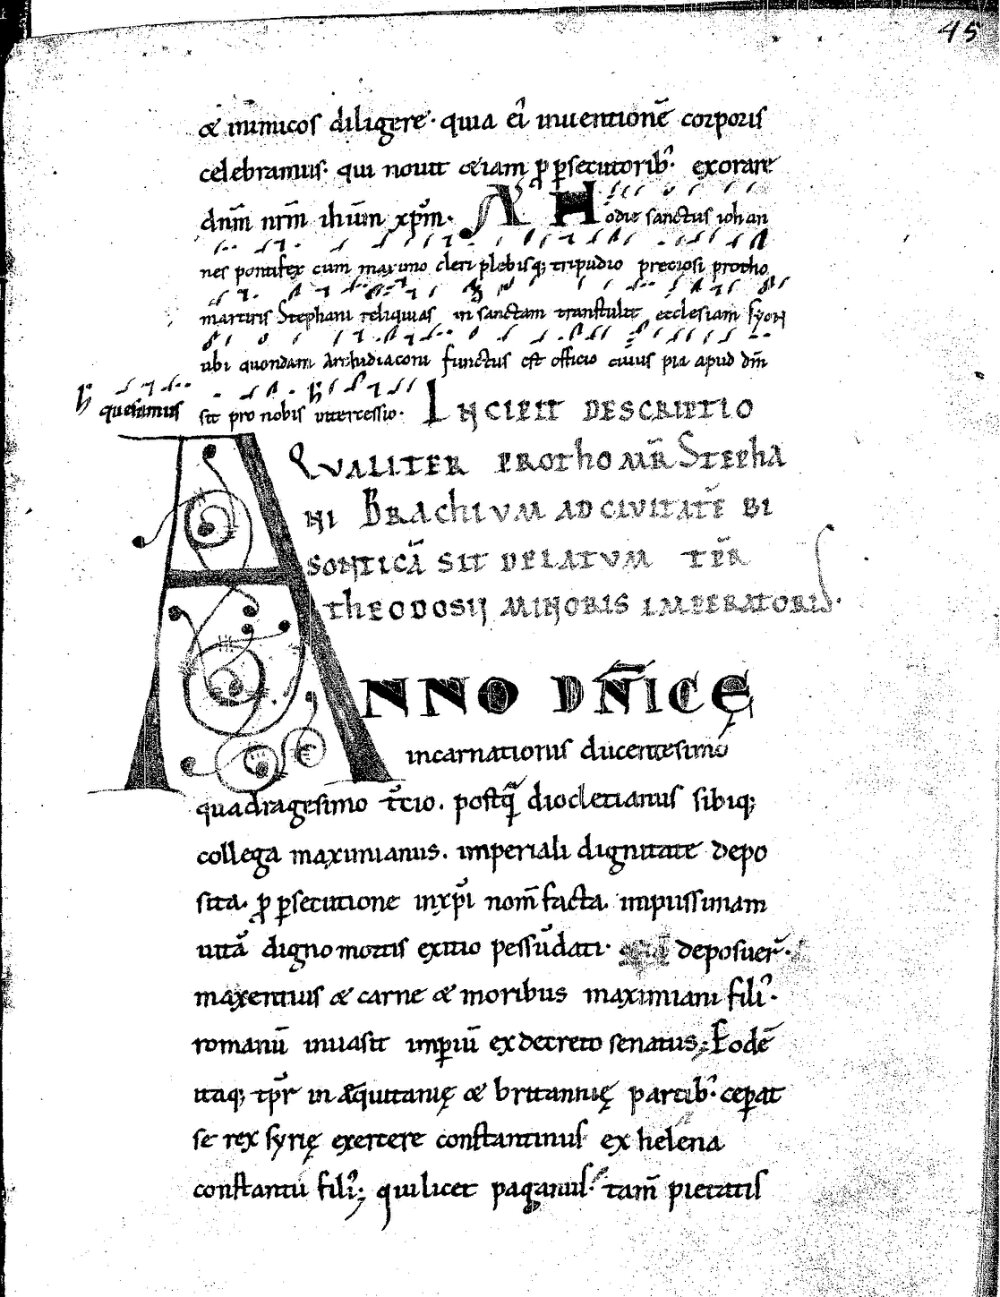 45
& inimicos diligere · quia ei' inuentionē corporis
celebramus · qui nouit &iam ꝓ ꝑsecutorib' · exorare
dn̄m nr̄m ihūm xp̄m · A Hodie sanctus iohan
nes pontifex cum maximo cleri plebisq; tripudio preciosi protho
martiris Stephani reliquias in sanctam transtulit ecclesiam Syon
ubi quondam Archidiaconi functus est officio cuius pia apud dm̄
quesumus sit pro nobis intercessio · INCIPIT DESCRIPTIO
QVALITER PROTHOMR̄ STEPHA
NI BRAChIVM AD CIVITATĒ BI
SONTICĀ SIT DELATVM TP̄R
ThEODOSII MINORIS IMPERATORIS ·
ANNO DN̄ICĘ
incarnationis ducentesimo
quadragesimo t'cio . postq̄ diocletianus sibiq;
collega maximianus . imperiali dignitate depo
sita . ꝓ ꝑsecutione inxp̄i nom̄ facta impiissimam
uitā digno mortis exitio pessūdati · deposuer̄ ·
maxentius & carne & moribus maximiani fili' ·
romanū inuasit imꝑiū ex decreto senatus ; Eodē
itaq; tp̄r in Aquitanię & britannię partib' · ceꝑat
se rex syrię exercere constantinus ex helena
constantii fili' ; qui licet paganus · tam̄ pietatis